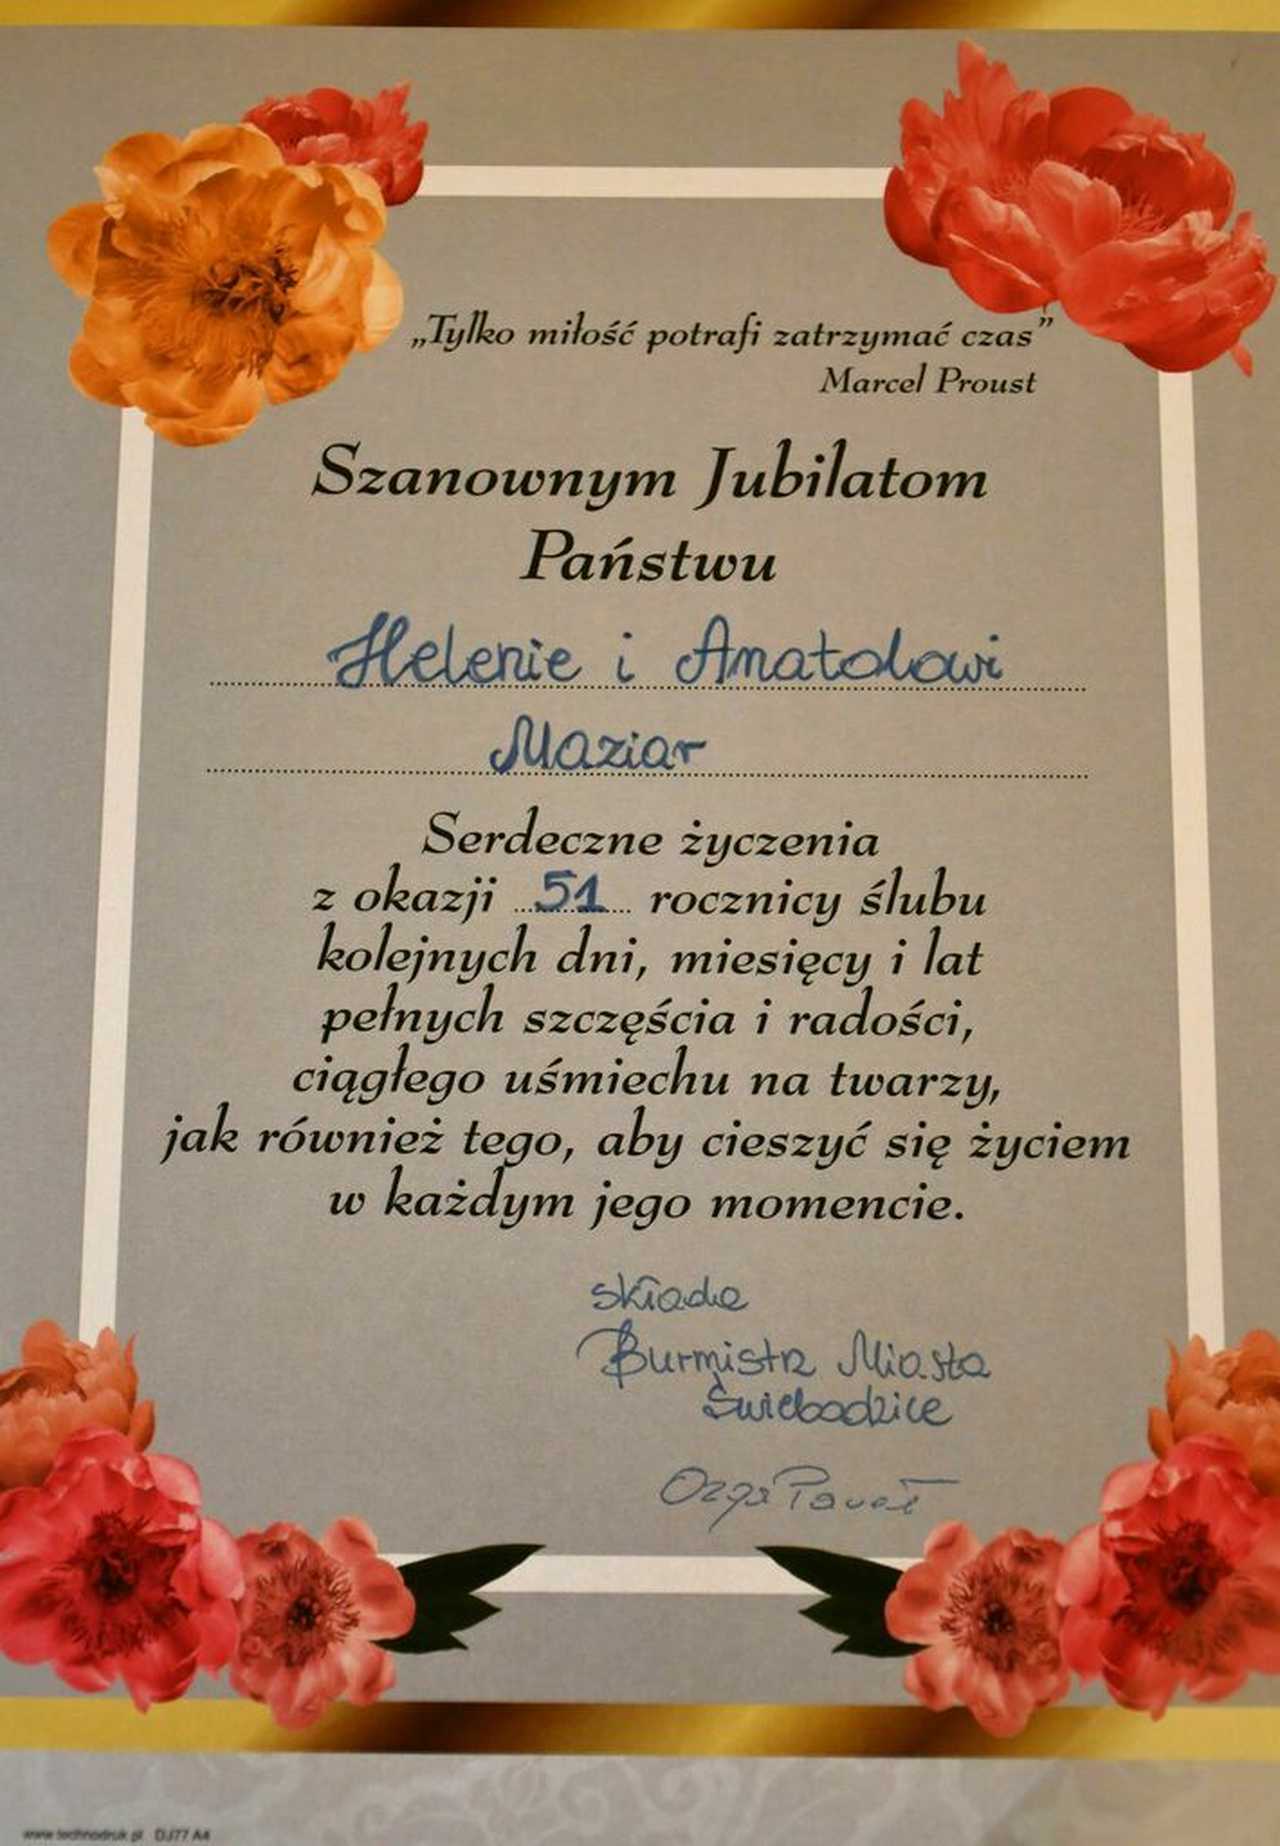 „Tylko miłość potrafi zatrzymać czas”
Marcel Proust
Szanownym Jubilatom
Państwu
Helenie i Anatolowi
Maziar
Serdeczne życzenia
z okazji 51 rocznicy ślubu
kolejnych dni, miesięcy i lat
pełnych szczęścia i radości,
ciągłego uśmiechu na twarzy,
jak również tego, aby cieszyć się życiem
w każdym jego momencie.
składa
Burmistrz Miasta
Świebodzice
www.technodruk.pl DJ77 A4